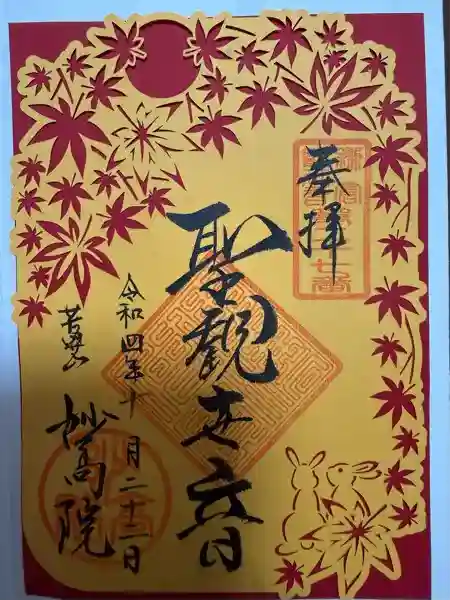 奉拝
聖観世音
令和四年十月二十二日
苔野山
妙高院